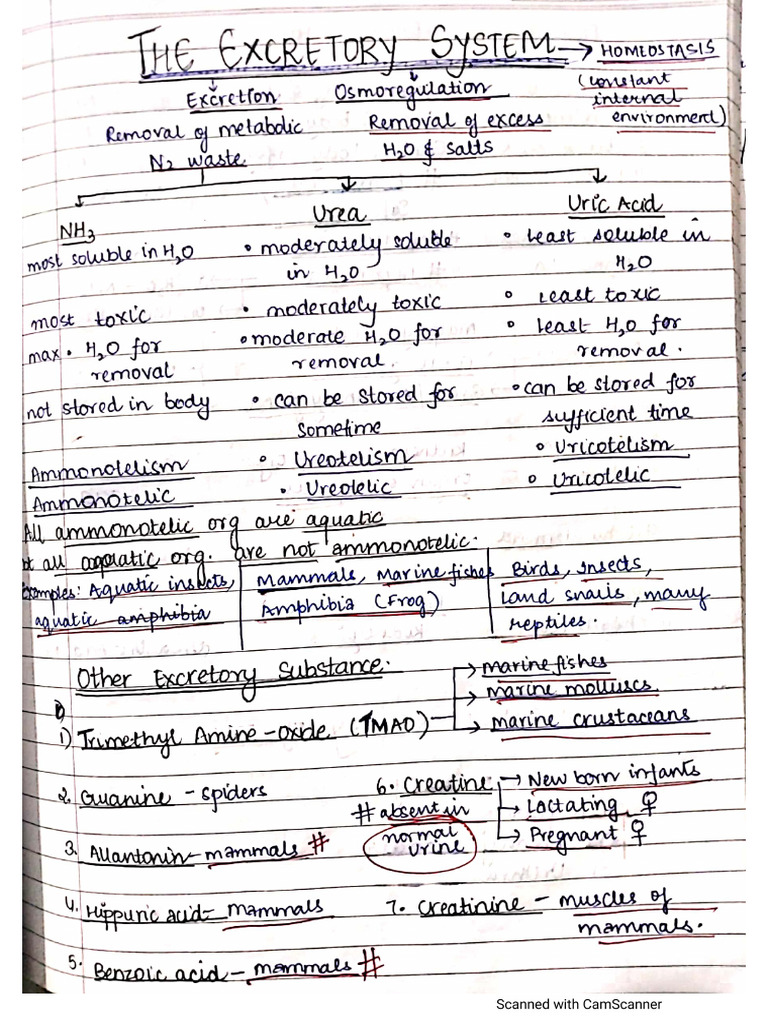 THE EXCRETORY SYSTEM → HOMEOSTASIS
(constant internal environment)
Excretion
Removal of metabolic
N2 waste
Osmoregulation
Removal of excess
H2O & salts
NH3
most soluble in H2O
most toxic
max. H2O for
removal
not stored in body
Ammonotelism
Ammonotelic
Urea
• moderately soluble
in H2O
• moderately toxic
• moderate H2O for
removal.
• can be stored for
sometime
• Ureotelism
• Ureotelic
Uric Acid
• least soluble in
H2O
• least toxic
• least H2O for
removal.
• can be stored for
sufficient time
• Uricotelism
• Uricotelic
All ammonotelic org are aquatic
all aquatic org. are not ammonotelic.
Examples: Aquatic insects,
aquatic amphibia
Mammals, Marine fishes
Amphibia (Frog)
Birds, Insects,
land snails, many
reptiles.
Other Excretory Substance.
1) Trimethyl Amine-oxide (TMAO)
→ marine fishes
→ marine molluscs
→ marine crustaceans
2. Guanine - spiders
3. Allantonin - mammals #
4. Hippuric acid - mammals
5. Benzoic acid - mammals #
6. Creatine
→ New born infants
→ Lactating ♀
→ Pregnant ♀
# absent in
normal
urine
7. Creatinine - muscles of
mammals.
Scanned with CamScanner